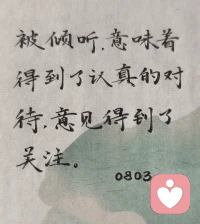 被倾听，意味着
得到了认真的对
待，意见得到了
关注。
0803